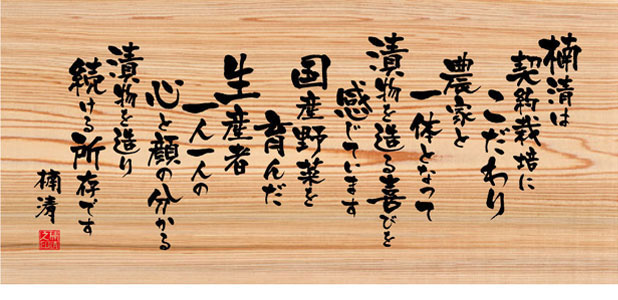 楠清は
契約栽培に
こだわり
農家と
一体となって
漬物を造る喜びを
感じています
国産野菜を
育んだ
生産者
一人一人の
心と顔の分かる
漬物を造り
続ける所存です
楠清